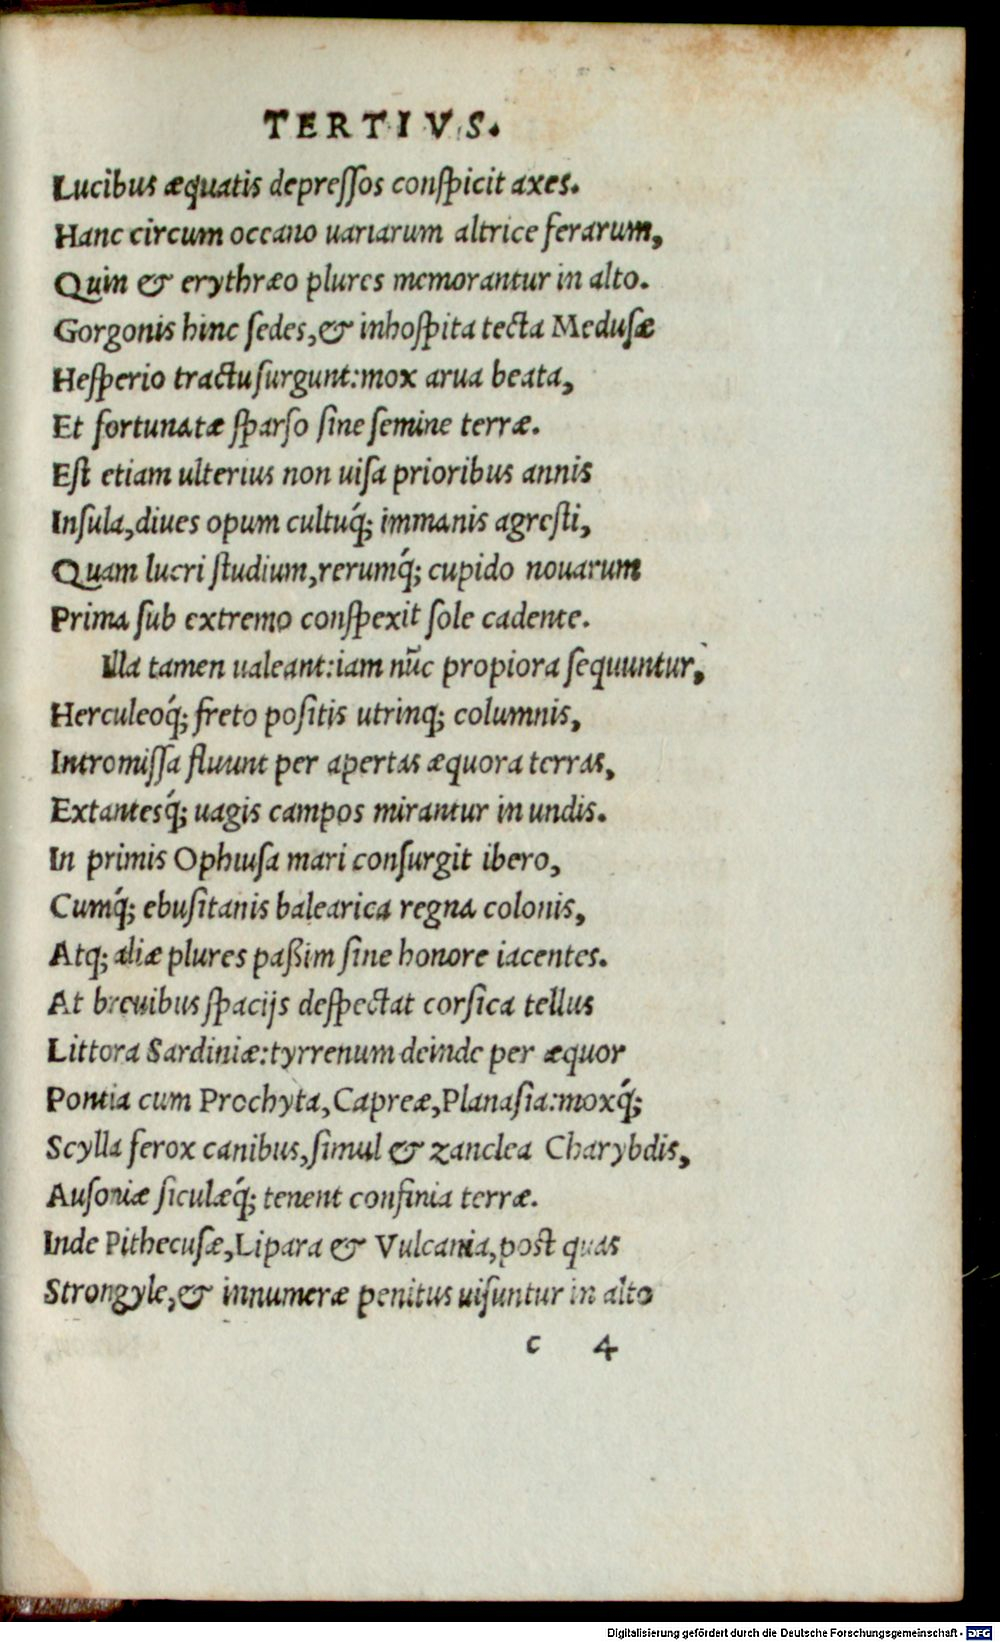 TERTIVS.
Lucibus æquatis depreſſos conſpicit axes.
Hanc circum oceano uariarum altrice ferarum,
Quin & erythræo plures memorantur in alto.
Gorgonis hinc ſedes,& inhoſpita tecta Meduſæ
Heſperio tractu ſurgunt:mox arua beata,
Et fortunatæ ſparſo ſine ſemine terræ.
Eſt etiam ulterius non uiſa prioribus annis
Inſula,diues opum cultuq́; immanis agreſti,
Quam lucri ſtudium,rerumq́; cupido nouarum
Prima ſub extremo conſpexit ſole cadente.
Illa tamen ualeant:iam nūc propiora ſequuntur,
Herculeoq́; freto poſitis utrinq; columnis,
Intromiſſa fluunt per apertas æquora terras,
Extantesq́; uagis campos mirantur in undis.
In primis Ophiuſa mari conſurgit ibero,
Cumq́; ebuſitanis balearica regna colonis,
Atq; aliæ plures paßim ſine honore iacentes.
At breuibus ſpacijs deſpectat corſica tellus
Littora Sardiniæ:tyrrenum deinde per æquor
Pontia cum Prochyta,Capreæ,Planaſia:moxq́;
Scylla ferox canibus,ſimul & zanclea Charybdis,
Auſoniæ ſiculæq́; tenent confinia terræ.
Inde Pithecuſæ,Lipara & Vulcania,poſt quas
Strongyle,& innumeræ penitus uiſuntur in alto
c 4
Digitalisierung gefördert durch die Deutsche Forschungsgemeinschaft - DFG